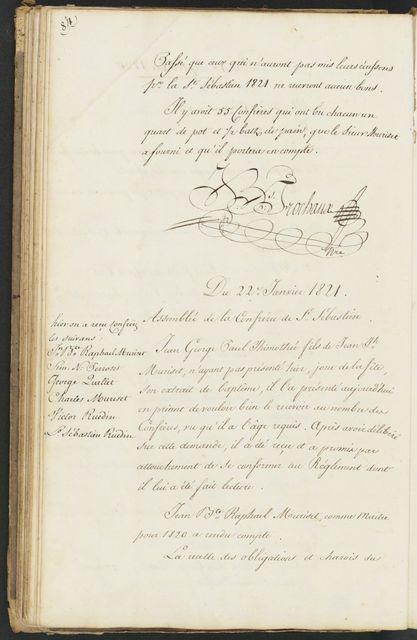 84
Passé que ceux qui n'auront pas mis leurs écussons
pr. la St. Sébastien 1821 ne recevront aucun bons.
Il y avoit 55 Confrères qui ont bu chacun un
quart de pot et ½ batz de pain, que le Sieur Muriset
a fourni et qu'il portera en compte.
Frochaux
Nre
Du 22e. Janvier 1821.
Assemblée de la Confrérie de St. Sébastien.
hier on a reçu Confrères
les suivans:
Jn. Bte. Raphael Muriset
Sim. N. Perroset
George Quellet
Charles Muriset
Victor Ruedin
Ls. Sébastien Ruedin
Jean George Paul Thimothé fils de Jean Pre.
Muriset, n'ayant pas présenté hier, jour de la fête,
son extrait de baptême, il l'a présenté aujourd'hui
en priant de vouloir bien le recevoir au nombre des
Confrères, vu qu'il a l'âge requis. Après avoir délibéré
sur cette demande, il a été reçu et a promis par
attouchement de se conformer au Réglement dont
il lui a été fait lecture.
Jean Bte. Raphael Muriset, comme Maître
pour 1820 a rendu compte.
La recette des obligations et charois du